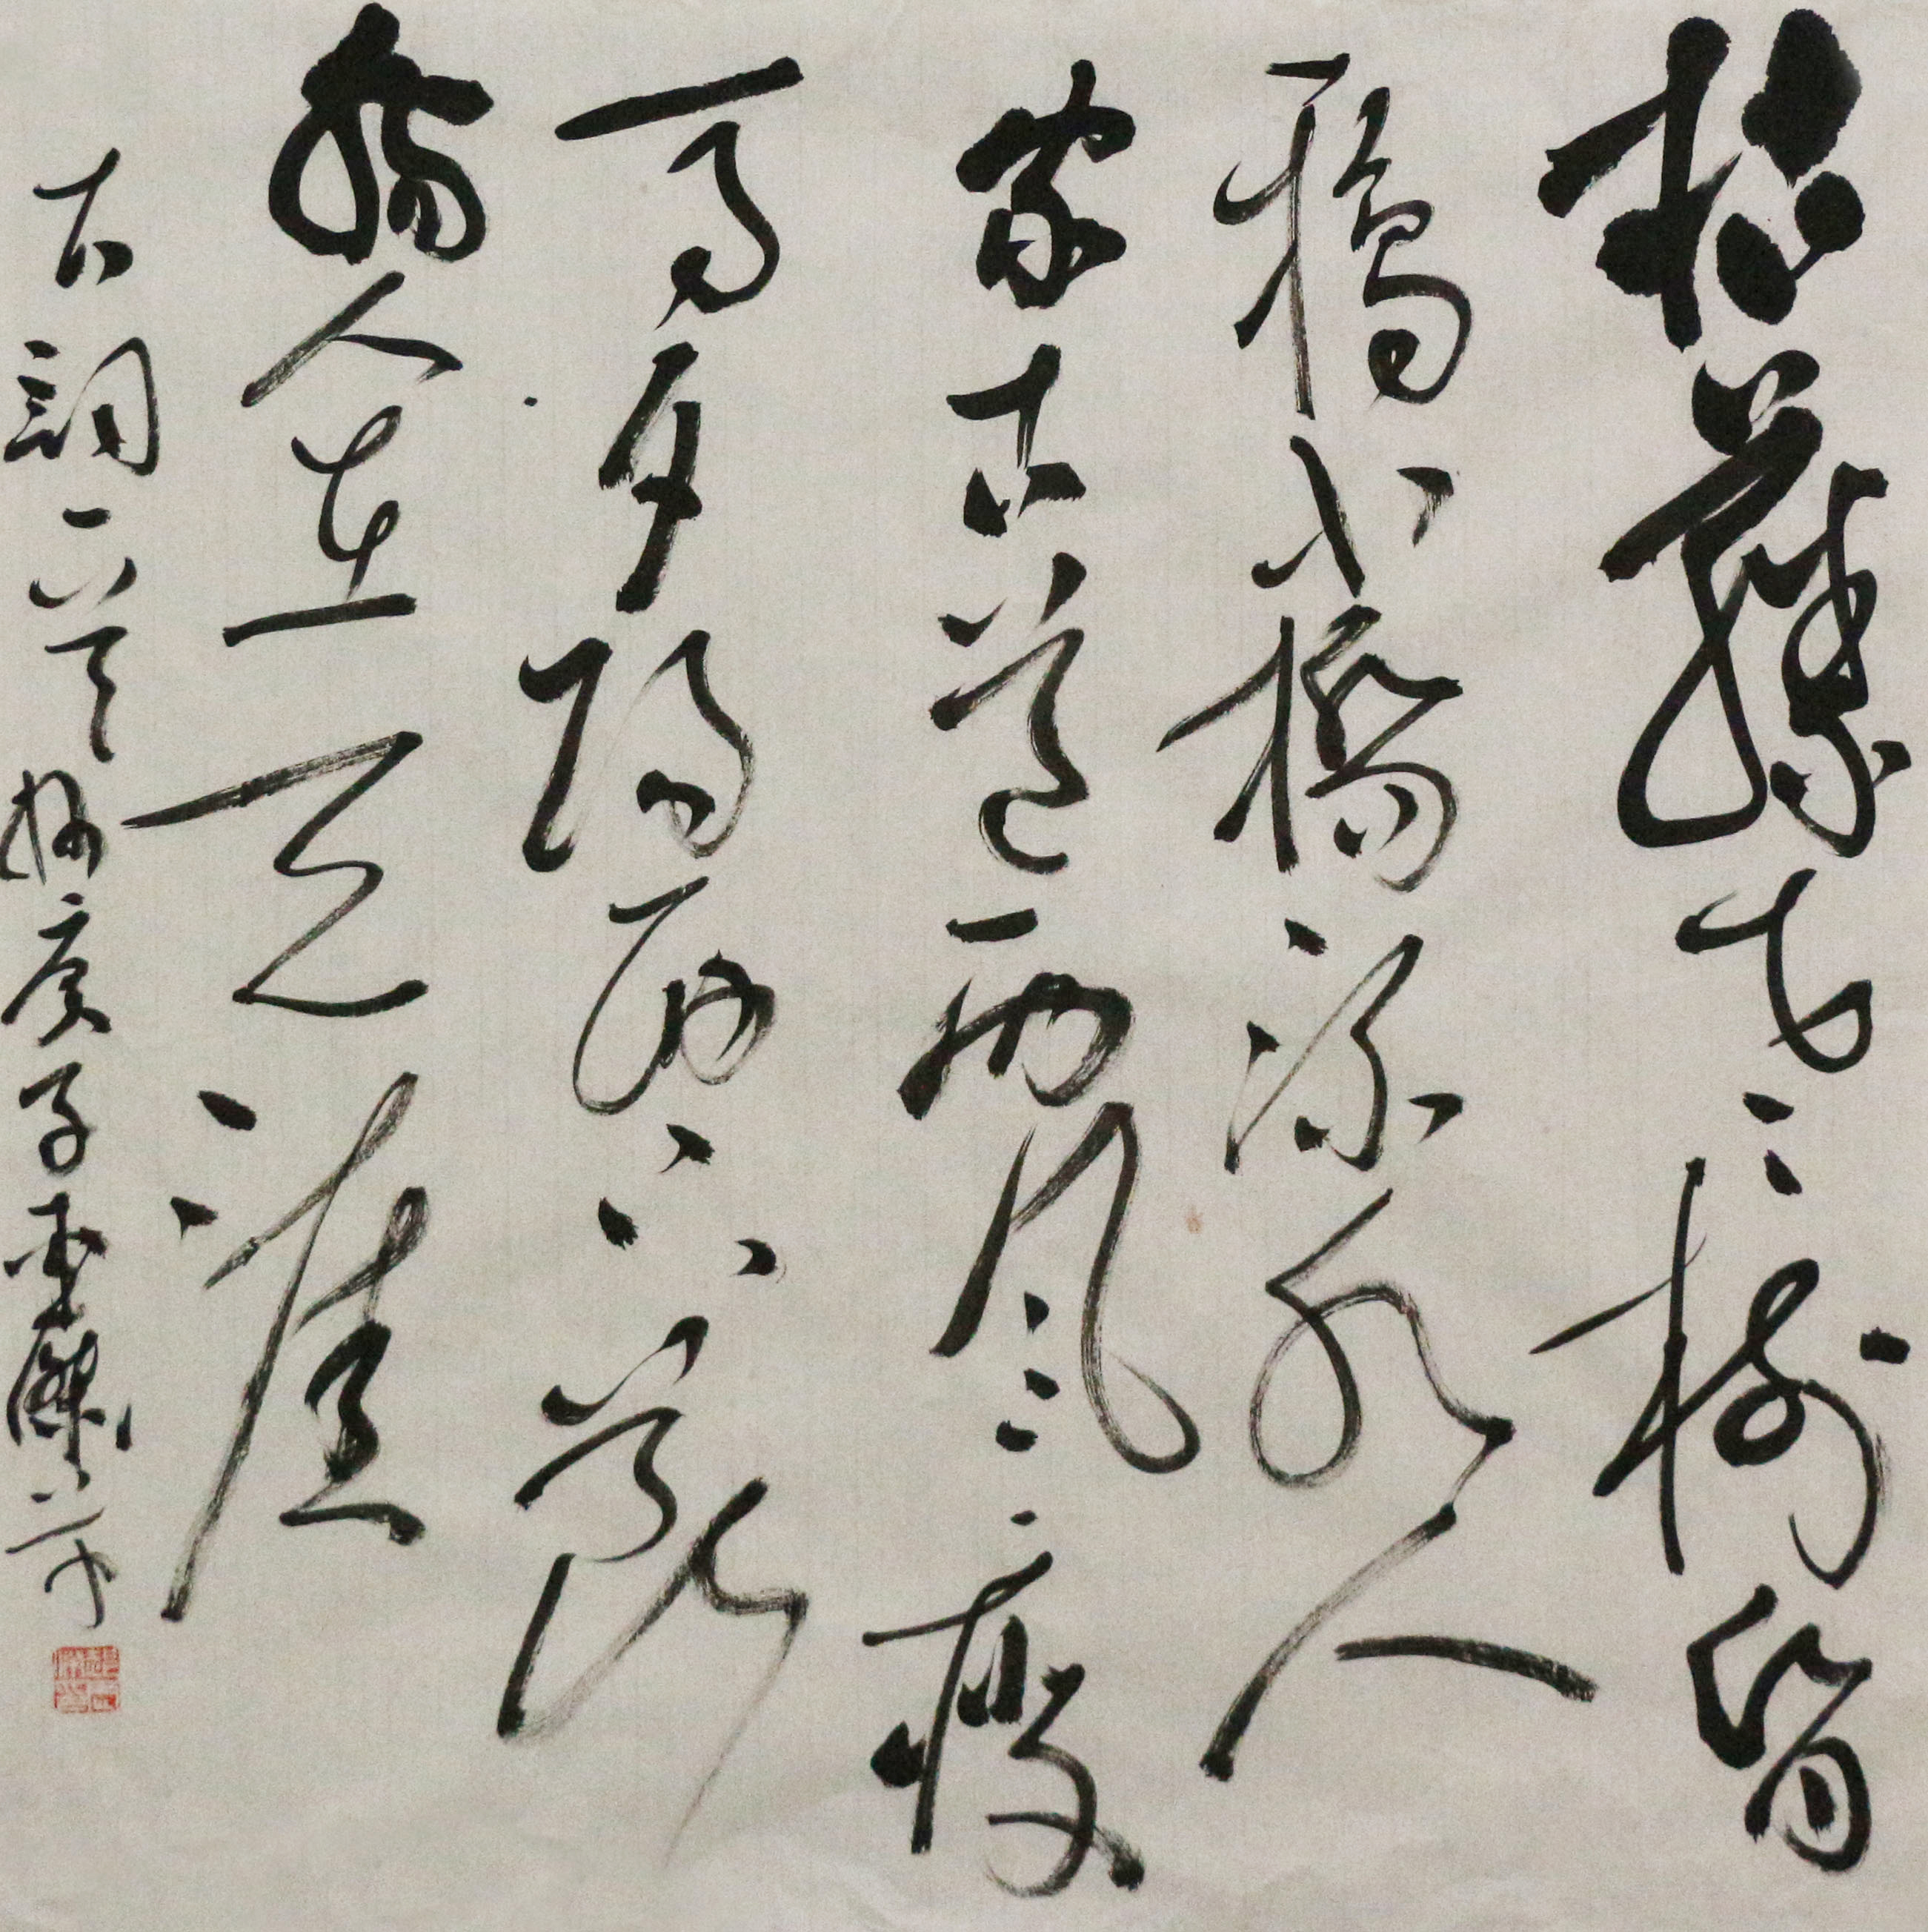 枯藤老樹昏
鴉小橋流水人
家古道西風瘦
馬夕陽西下斷
腸人在天涯
古詞一首 庚子